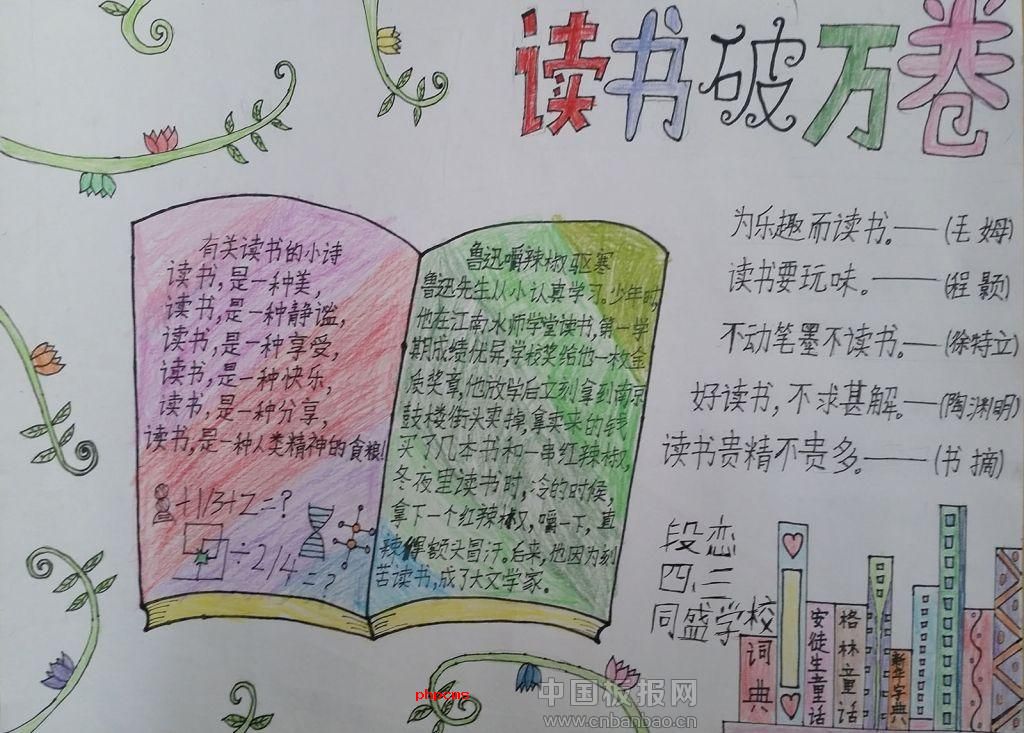 读书破万卷
有关读书的小诗
读书,是一种美,
读书,是一种静谧,
读书,是一种享受,
读书,是一种快乐,
读书,是一种分享,
读书,是一种人类精神的食粮!
+11/3+2=?
÷2/4=?
鲁迅嚼辣椒驱寒
鲁迅先生从小认真学习。少年时,
他在江南水师学堂读书,第一学
期成绩优异,学校奖给他一枚金
质奖章,他放学后立刻拿到南京
鼓楼街头卖掉,拿卖来的钱
买了几本书和一串红辣椒,
冬夜里读书时,冷的时候,
拿下一个红辣椒,嚼一下,直
辣得额头冒汗。后来,他因为刻
苦读书,成了大文学家。
为乐趣而读书。——(毛姆)
读书要玩味。——(程颢)
不动笔墨不读书。—(徐特立)
好读书,不求甚解。—(陶渊明)
读书贵精不贵多。——(书摘)
段恋
四.三
同盛学校
词典
安徒生童话
格林童话
新华字典
phpcms
中国板报网
www.cnbanbao.cn